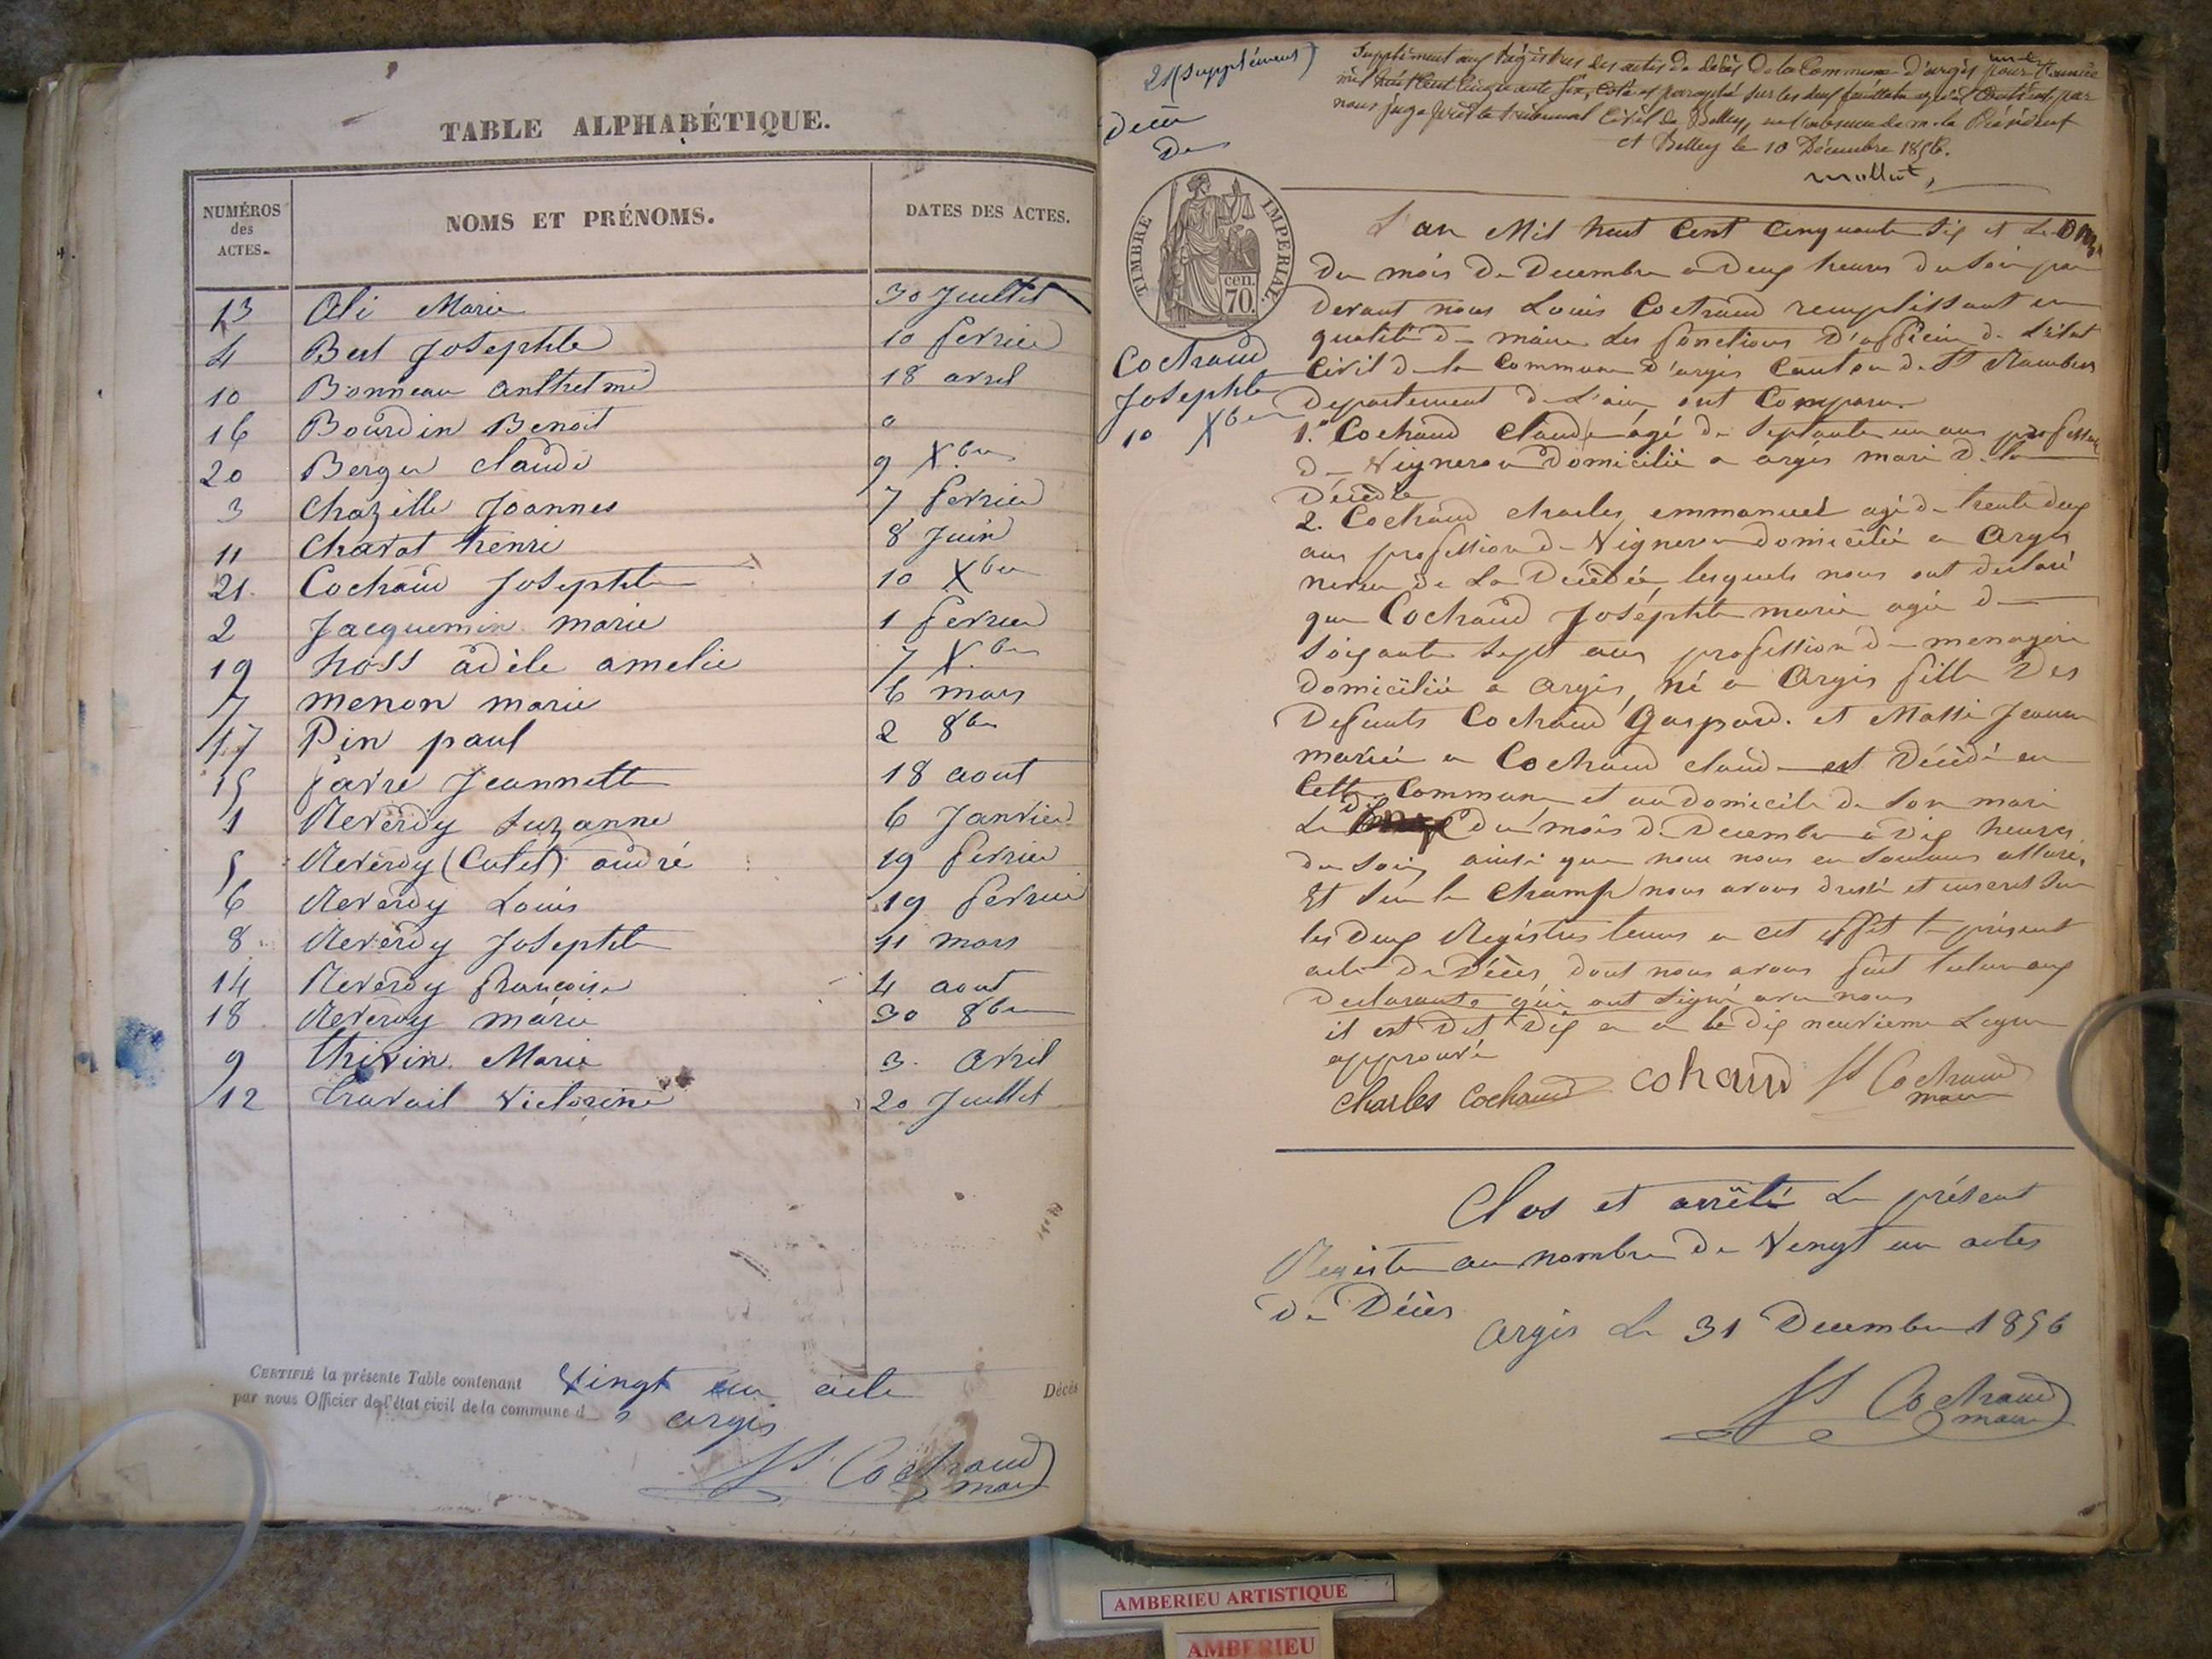 TABLE ALPHABÉTIQUE.
NUMÉROS des ACTES. NOMS ET PRÉNOMS. DATES DES ACTES.
13 Ali Marie 30 Juillet
4 Bert Josephte 10 fevrier
10 Bonneau anthelme 18 avril
16 Bourdin Benoit
20 Berger claude 9 Xbre
3 Chazille Joannes 7 fevrier
11 Charvat henri 8 Juin
21. Cochaud Josephte 10 Xbre
2 Jacquemin marie 1 fevrier
19 hoss adèle amelie 7 Xbre
7 menon marie 6 mars
17 Pin paul 2 8bre
15 favre Jeannette 18 aout
1 Reverdy Suzanne 6 Janvier
5 Reverdy (Culet) andré 19 fevrier
6 Reverdy Louis 19 fevrier
8 Reverdy Josephte 11 mars
14 Reverdy françoise 4 aout
18 Reverdy marie 30 8bre
9 thivin Marie 3. Avril
12 travail Victorine 20 Juillet
CERTIFIÉ la présente Table contenant Vingt un acte Décès
par nous Officier de l'état civil de la commune d argis
Cochaud
maire
21 (supplément)
Décès
De
Cochaud
Josephte
10 Xbre
TIMBRE IMPERIAL.
cen.
70.
Supplément aux Régistres des actes de décès de la Commune d'argis pour l'année
mil huit cent cinquante six, coté et paraphé sur les deux feuillets par
nous juge près le tribunal Civil de Belley, en l'absence de m. le Président
Belley le 10 Décembre 1856.
L'an Mil huit Cent Cinquante Six et Le Onze
Du mois De Decembre a Deux heures Du Soir par
Devant nous Louis Cochaud remplissant en
qualité De maire Les fonctions D'officier De L'état
Civil De la Commune D'argis Canton De St Rambert
Département De L'ain, ont Comparu
1.° Cochaud Claude agé De Septante un ans profession
De Vigneron Domicilié a argis mari De la
Décédée
2. Cochaud charles emmanuel agé De trente deux
ans profession De Vigneron Domicilié a Argis
neveu de La Décédée, lesquels nous ont declaré
que Cochaud Joséphte marie agée De
Soixante Sept ans profession De menagère
Domiciliée a Argis, né a Argis fille Des
Defunts Cochaud Gaspard. et Jeanne
mariée a Cochaud claude est Décédé en
Cette Commune et au domicile De Son mari
Le dix Du mois De Decembre a Dix heures
du Soir, ainsi que nous nous en Sommes assuré,
Et Sur le Champ nous avons dressé et inscrit Sur
les Deux Registres tenus a cet effet le présent
acte De Décès, dont nous avons fait lecture aux
Declarants qui ont Signé avec nous
il est Dit Dix a la dix neuvieme Ligne
approuvé
Charles Cochaud cohaud Cochaud
maire
Clos et arrêté Le présent
Registre au nombre De Vingt un actes
De Décès
Argis Le 31 Decembre 1856
Cochaud
maire
AMBERIEU ARTISTIQUE
AMBERIEU